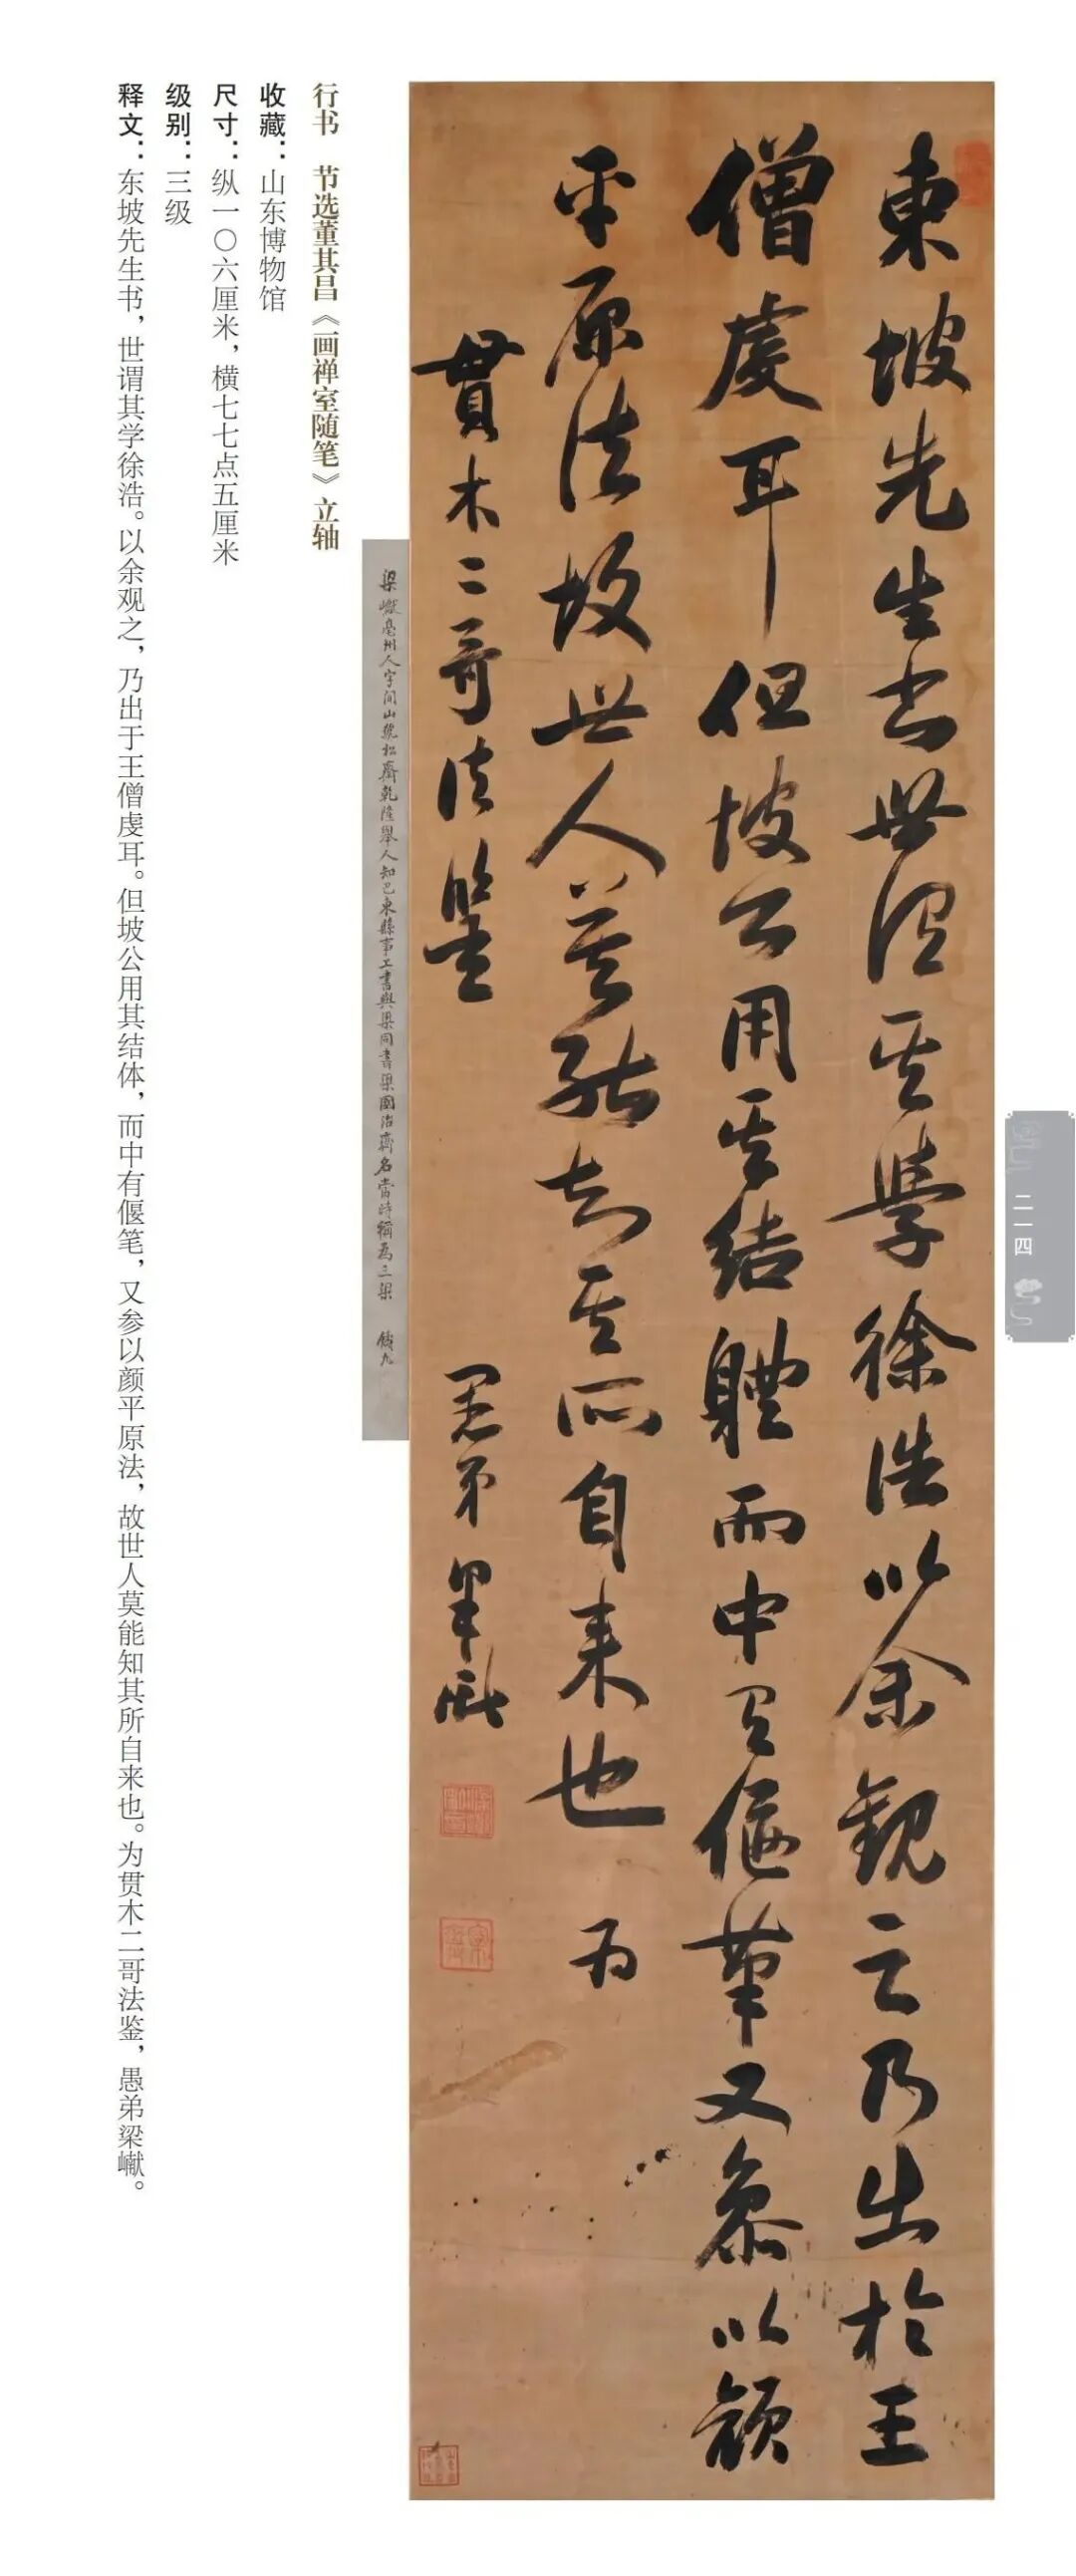 二一四
東坡先生書世謂其學徐浩以余觀之乃出於王
僧虔耳但坡公用其結體而中有偃筆又参以顔
平原法故世人莫能知其所自来也 为
贯木二哥法鉴 愚弟梁巘
梁巘亳州人字聞山號松齋乾隆舉人知巴東縣事工書與梁同書梁國治齊名當時稱為三梁
行书 节选董其昌《画禅室随笔》立轴
收藏：山东博物馆
尺寸：纵一〇六厘米，横七七点五厘米
级别：三级
释文：东坡先生书，世谓其学徐浩。以余观之，乃出于王僧虔耳。但坡公用其结体，而中有偃笔，又参以颜平原法，故世人莫能知其所自来也。为贯木二哥法鉴，愚弟梁巘。